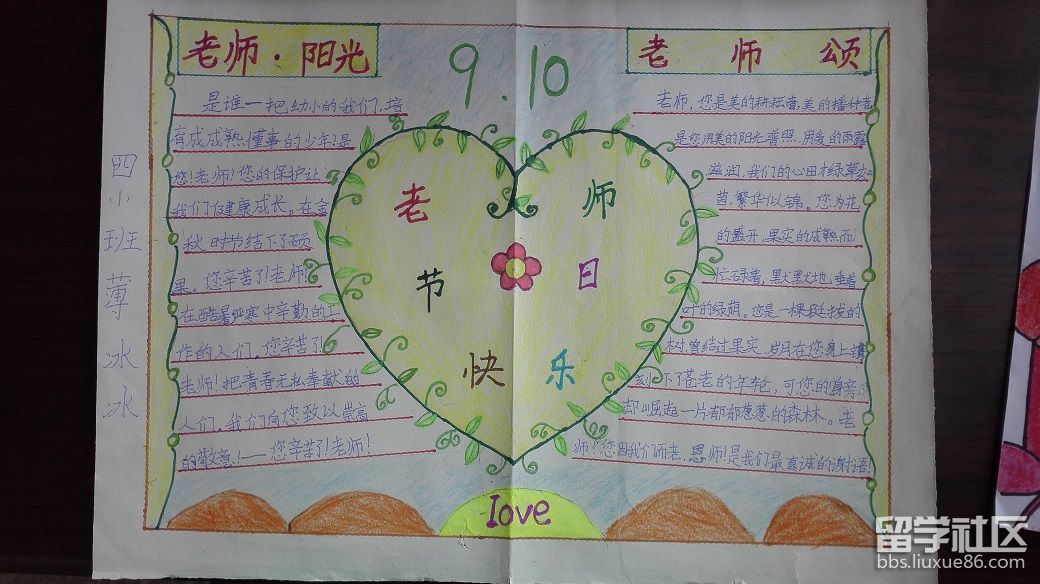 老师·阳光
是谁一把幼小的我们,培
育成成熟懂事的少年!是
您!老师!您的保护让
我们健康成长。在金
秋时节结下了硕
果。您辛苦了!老师!
在酷暑严寒中辛勤的工
作的人们。您辛苦了!
老师!把青春无私奉献给
人们。我们向您致以崇高
的敬意!——您辛苦了!老师!
9.10
老师
节日
快乐
love
老师颂
老师,您是美的耕耘者,美的播种者
是您用美的阳光普照,用爱的雨露
滋润,我们的心田才绿草如
茵,繁华似锦。您为花
的盛开,果实的成熟而
忙碌着,默默默地垂着
叶的绿荫。您是一棵挺拔的
树曾结过果实,岁月在您身上镌
刻下了苍老的年轮,可您的身旁
却崛起一片郁郁葱葱的森林。老
师!您因我们而老,恩师!是我们最真诚的谢语!
四小班薄冰冰
留学社区
bbs.liuxue86.com